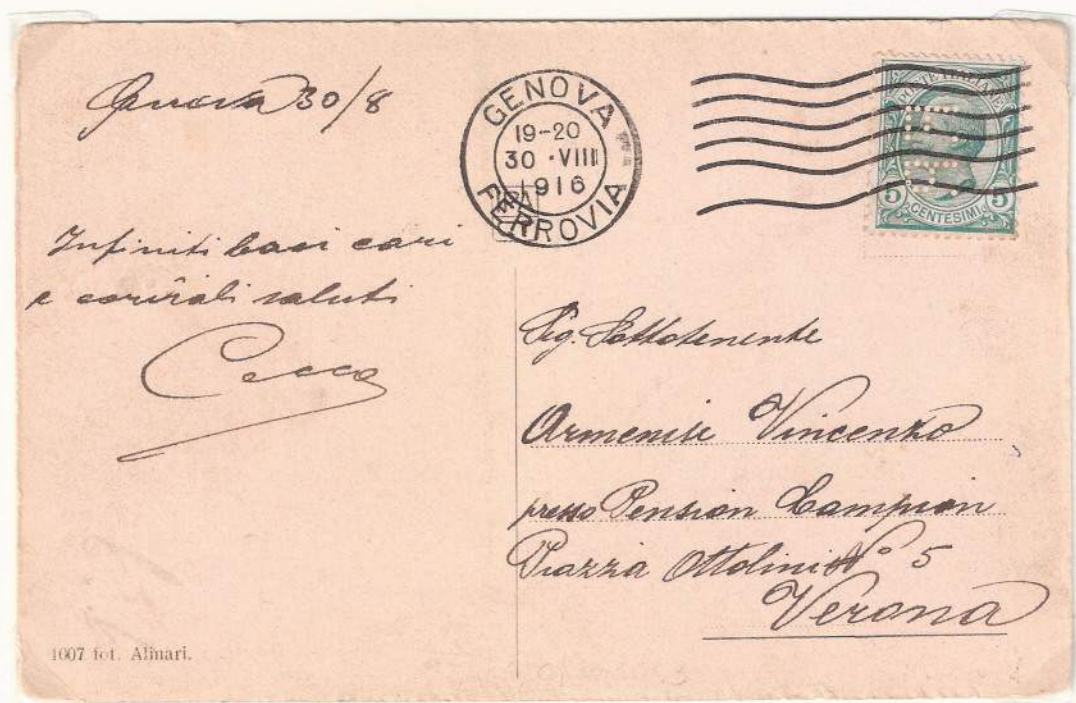 Genova 30/8
GENOVA
19-20
30 · VIII
1916
FERROVIA
POSTE ITALIANE
5 CENTESIMI 5
Infiniti baci cari
e cordiali saluti
Cecco
Sig. Sottotenente
Armenise Vincenzo
presso Pension Campion
Piazza Ottolini N° 5
Verona
1007 fot. Alinari.